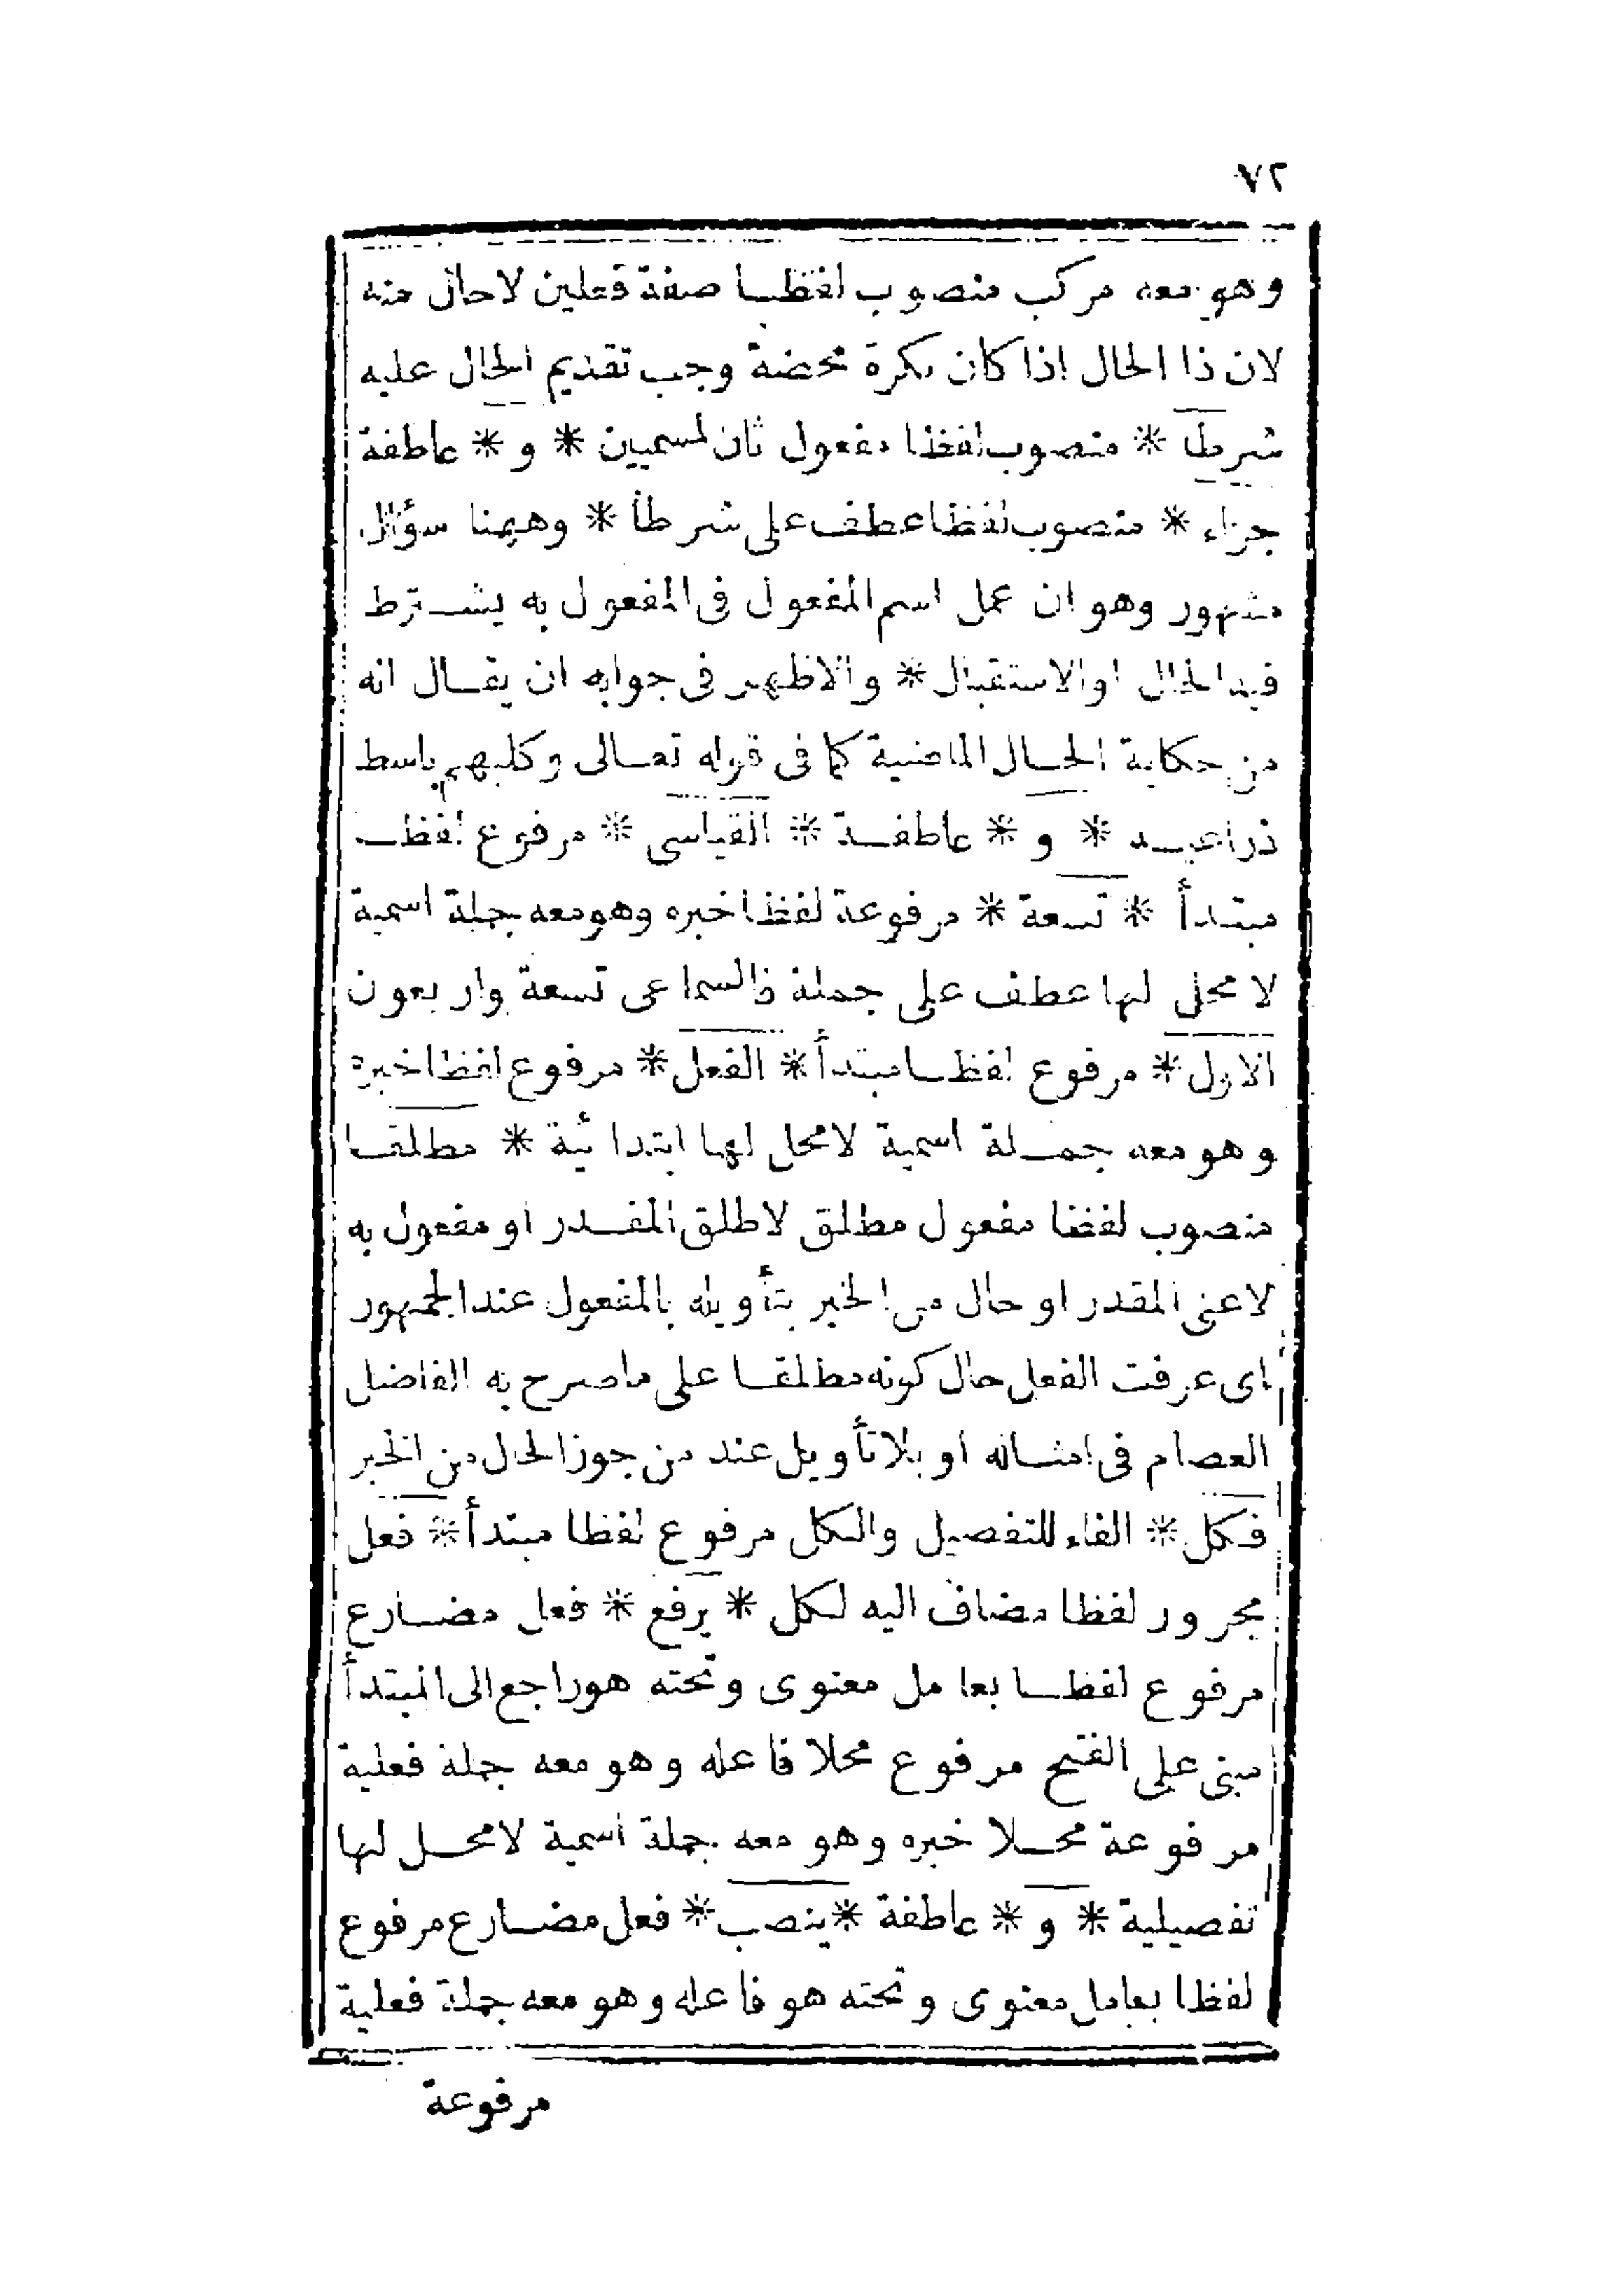 ٧٢
وهو معه مركب منصوب لفظا صفة فعلين لاحال منه
لان ذا الحال اذا كان نكرة محضة وجب تقديم الحال عليه
شرطا * منصوب لفظا مفعول ثان لمسميين * و * عاطفة
جزاء * منصوب لفظا عطف على شرطا * وههنا سؤال
مشهور وهو ان عمل اسم المفعول فى المفعول به يشترط
فيه الحال او الاستقبال * والاظهر فى جوابه ان يقال انه
من حكاية الحال الماضية كما فى قوله تعالى وكلبهم باسط
ذراعيه * و * عاطفة * القياسى * مرفوع لفظا
مبتدأ * تسعة * مرفوعة لفظا خبره وهو معه جملة اسمية
لا محل لها عطف على جملة فالسماعى تسعة واربعون
الاول * مرفوع لفظا مبتدأ * الفعل * مرفوع لفظا خبره
وهو معه جملة اسمية لامحل لها ابتدائية * مطلقا
منصوب لفظا مفعول مطلق لاطلق المقدر او مفعول به
لاعنى المقدر او حال من الخبر بتأويله بالمفعول عند الجمهور
اى عرفت الفعل حال كونه مطلقا على ماصرح به الفاضل
العصام فى امثاله او بلاتأويل عند من جوز الحال من الخبر
فكل * الفاء للتفصيل والكل مرفوع لفظا مبتدأ * فعل
مجرور لفظا مضاف اليه لكل * يرفع * فعل مضارع
مرفوع لفظا بعامل معنوى وتحته هو راجع الى المبتدأ
مبنى على الفتح مرفوع محلا فاعله وهو معه جملة فعلية
مرفوعة محلا خبره وهو معه جملة اسمية لامحل لها
تفصيلية * و * عاطفة * ينصب * فعل مضارع مرفوع
لفظا بعامل معنوى وتحته هو فاعله وهو معه جملة فعلية
مرفوعة